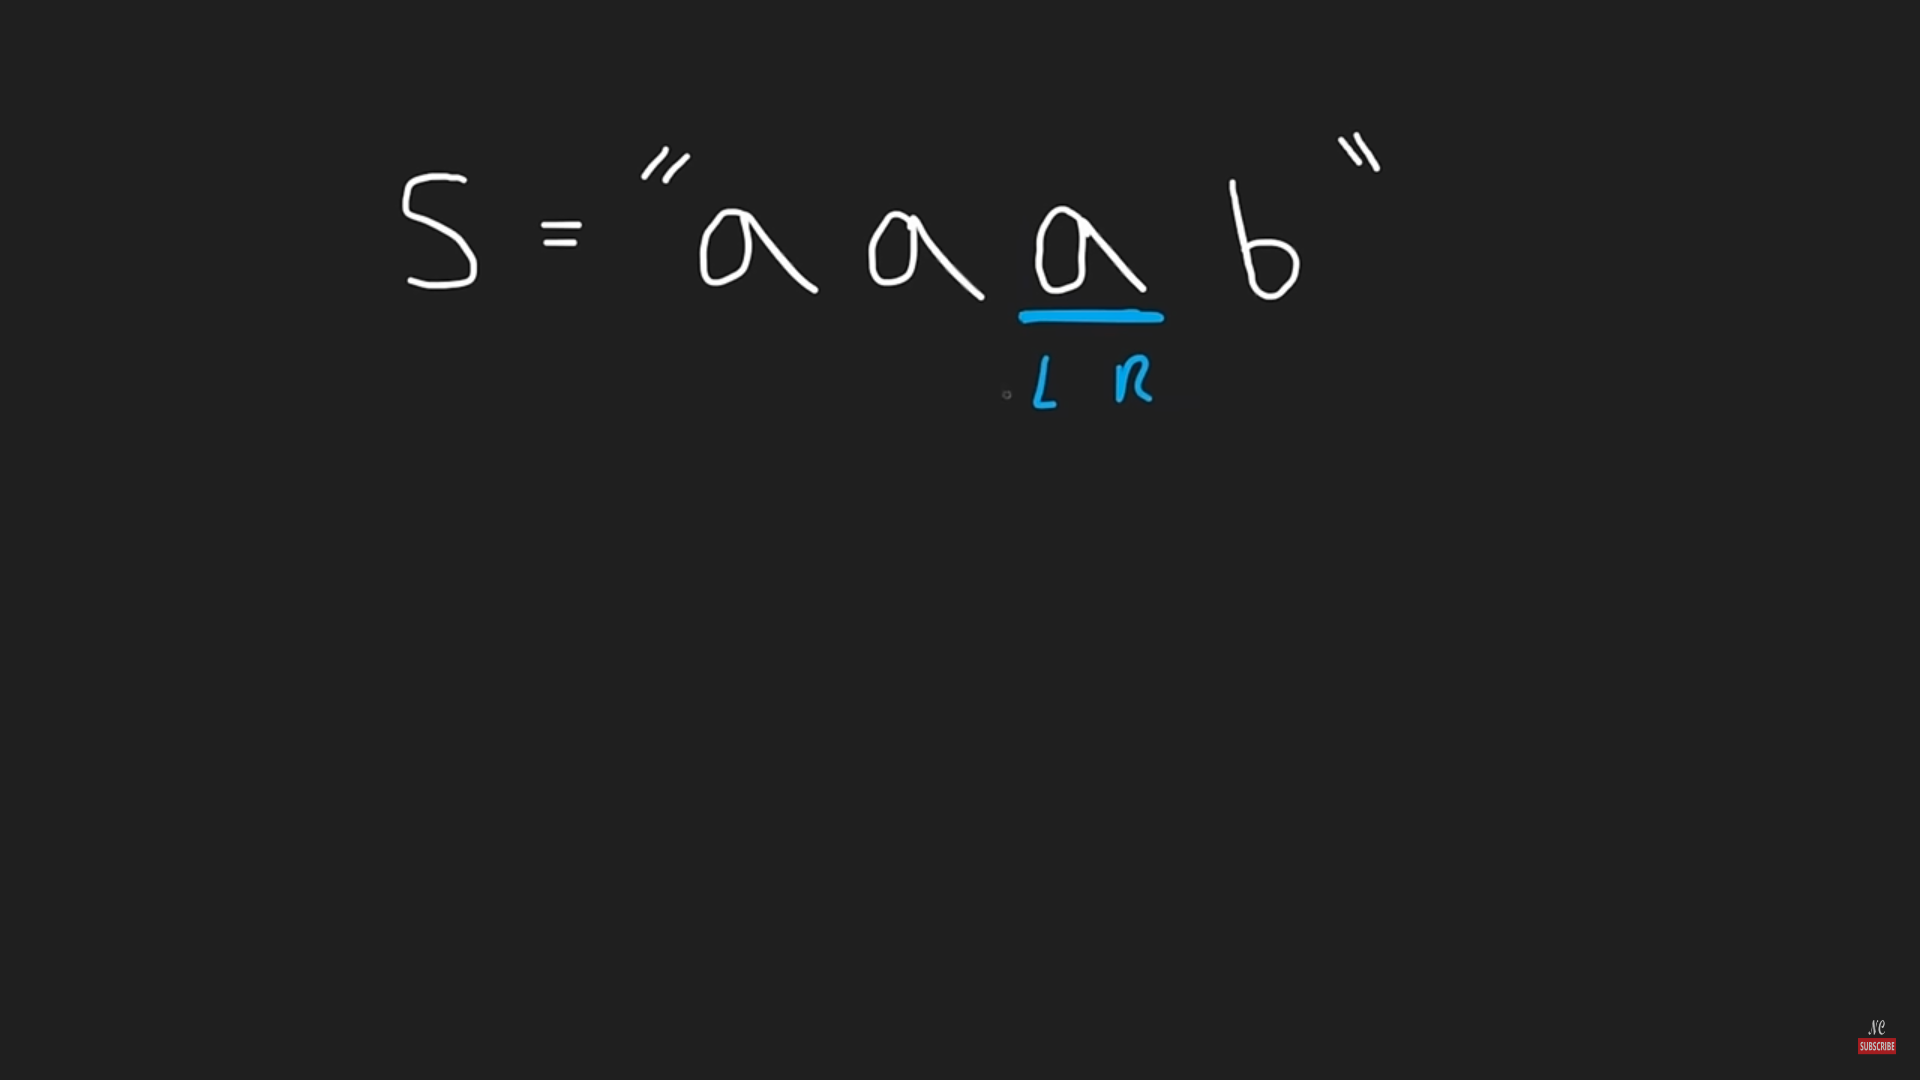 S = "a a a b"
L R
NC
SUBSCRIBE